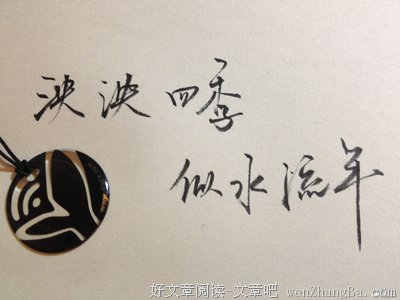 泱泱四季
似水流年
好文章阅读-文章吧
wenZhangBa.com